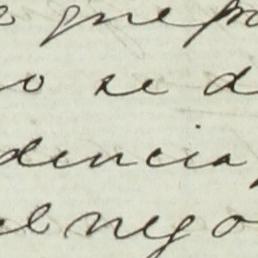 o que po
o se d
dencia,
el nego